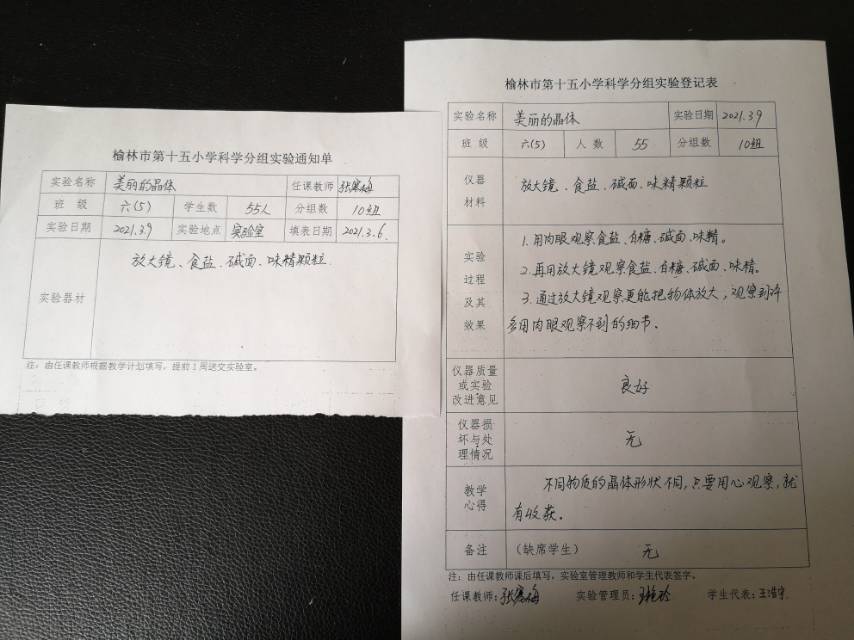 榆林市第十五小学科学分组实验通知单
实验名称 美丽的晶体 任课教师 张寒梅
班 级 六(5) 学生数 55人 分组数 10组
实验日期 2021.3.9 实验地点 实验室 填表日期 2021.3.6.
实验器材 放大镜、食盐、碱面、味精颗粒
注：由任课教师根据教学计划填写，提前1周送交实验室。
榆林市第十五小学科学分组实验登记表
实验名称 美丽的晶体 实验日期 2021.3.9
班 级 六(5) 人 数 55 分组数 10组
仪器
材料
放大镜、食盐、碱面、味精颗粒
实验
过程
及其
效果
1.用肉眼观察食盐、白糖、碱面、味精。
2.再用放大镜观察食盐、白糖、碱面、味精。
3.通过放大镜观察更能把物体放大，观察到许
多用肉眼观察不到的细节。
仪器质量
或实验
改进意见
良好
仪器损
坏与处
理情况
无
教学
心得
不同物质的晶体形状不同，只要用心观察，就
有收获。
备注 （缺席学生） 无
注：由任课教师课后填写，实验室管理教师和学生代表签字。
任课教师：张寒梅 实验管理员： 学生代表：王浩宇